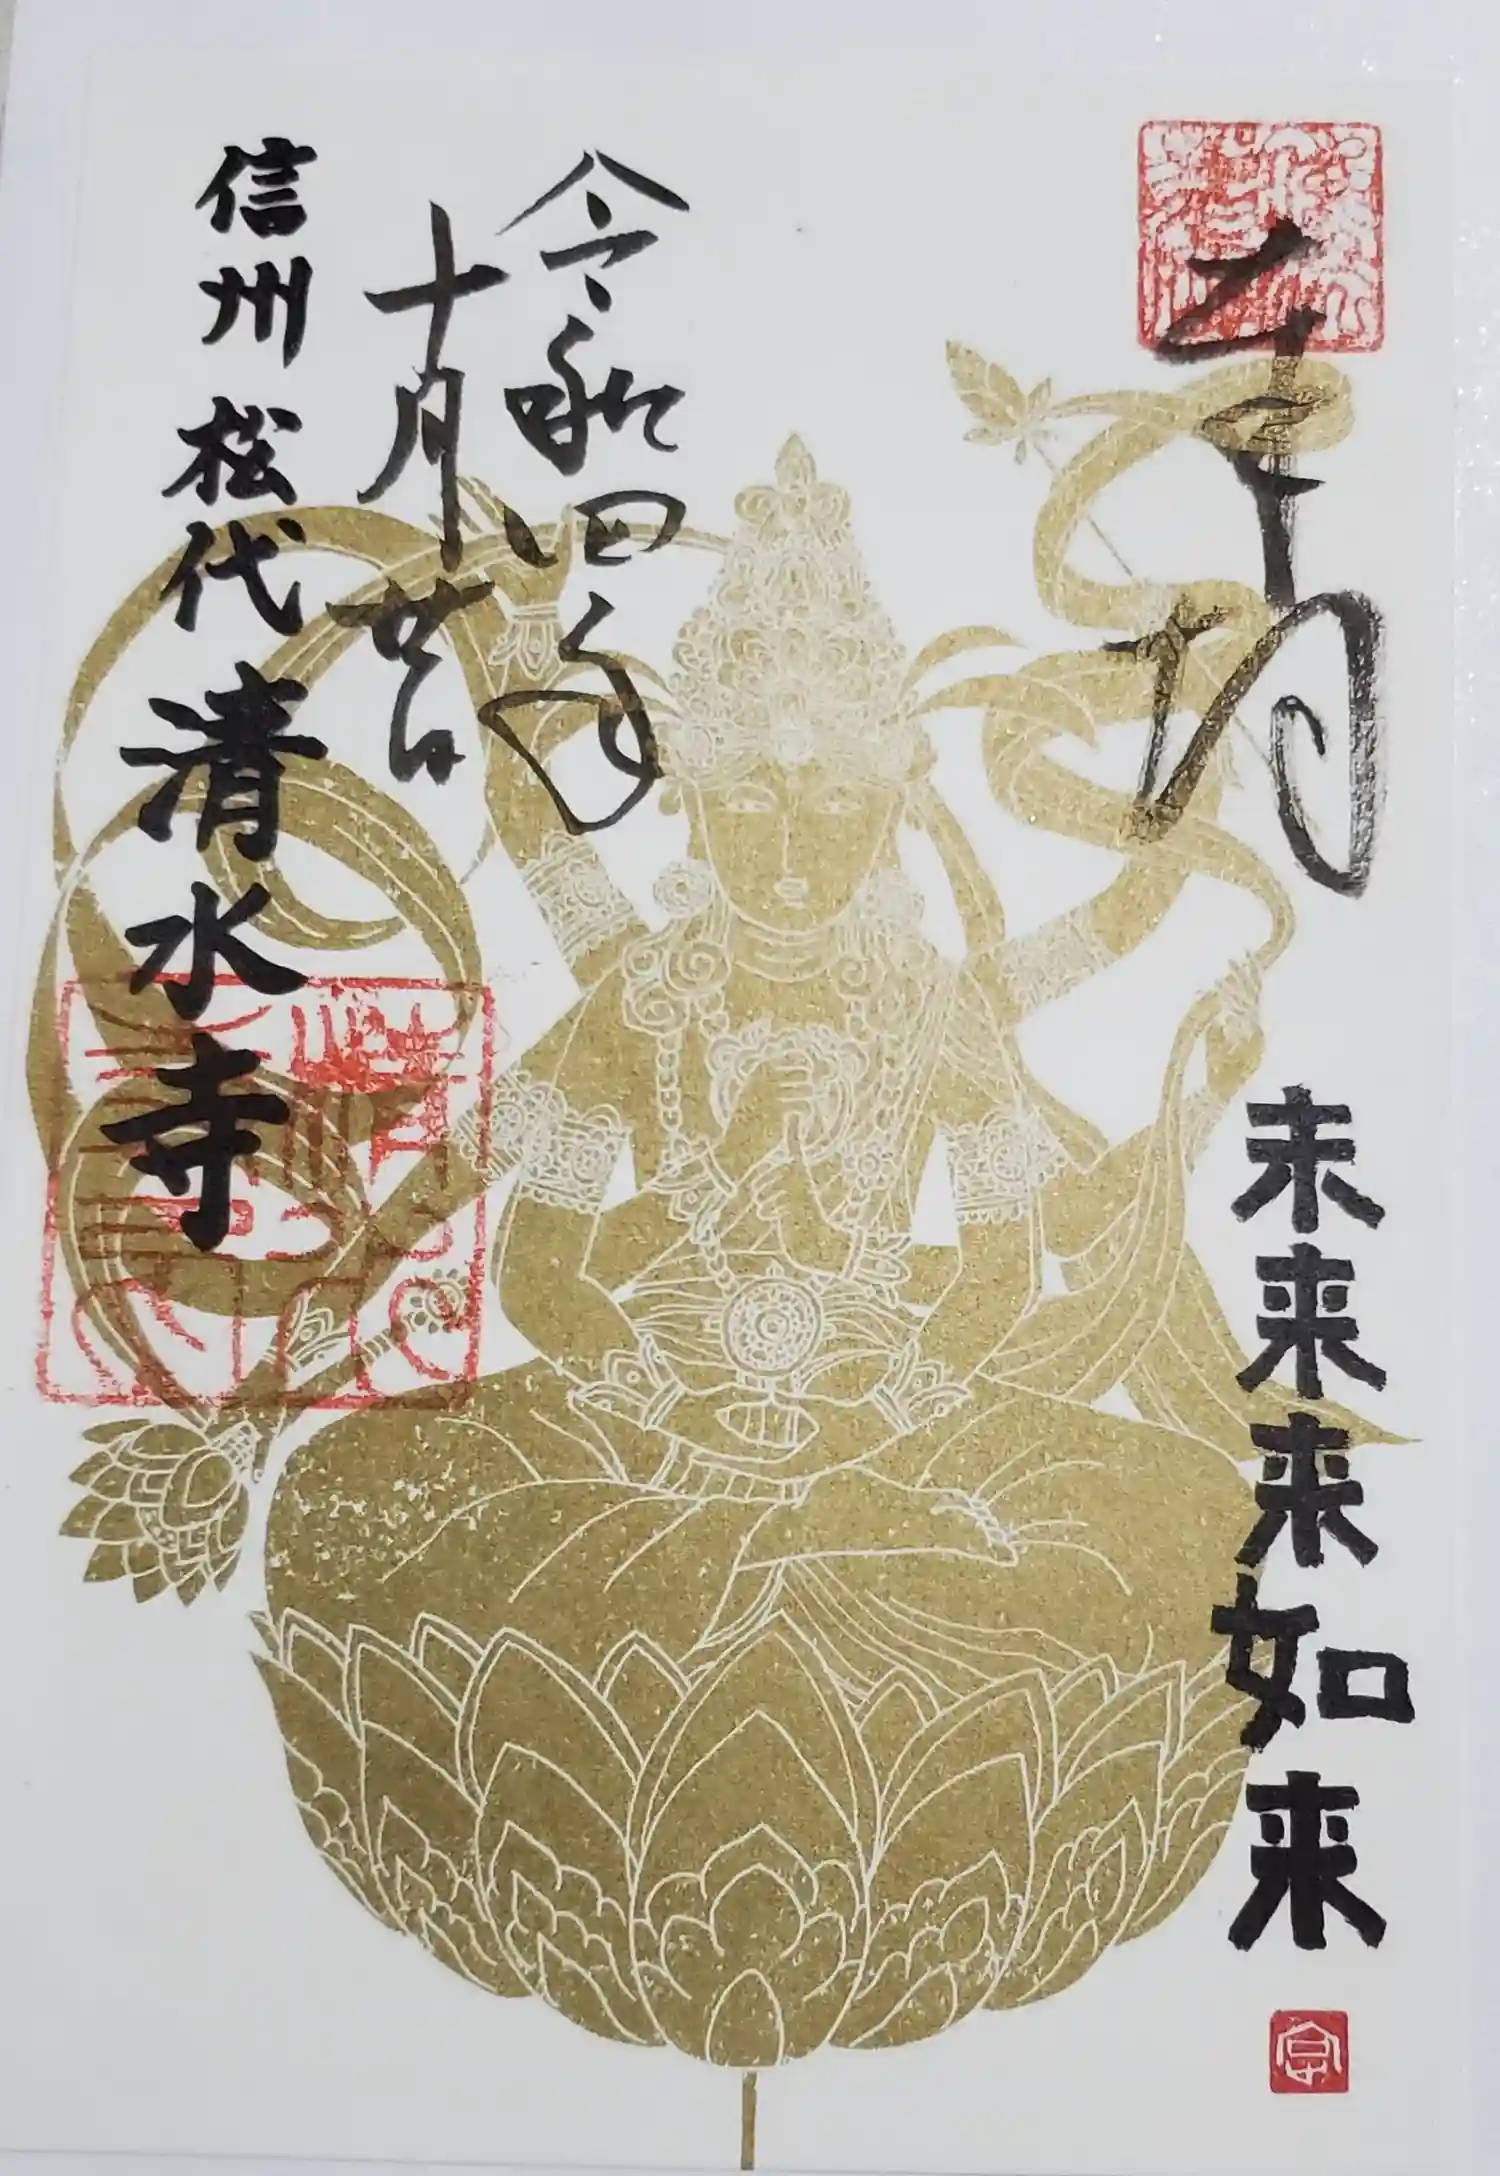 奉拝
未来来来如来
令和四年
十月廿日
信州 松代 清水寺